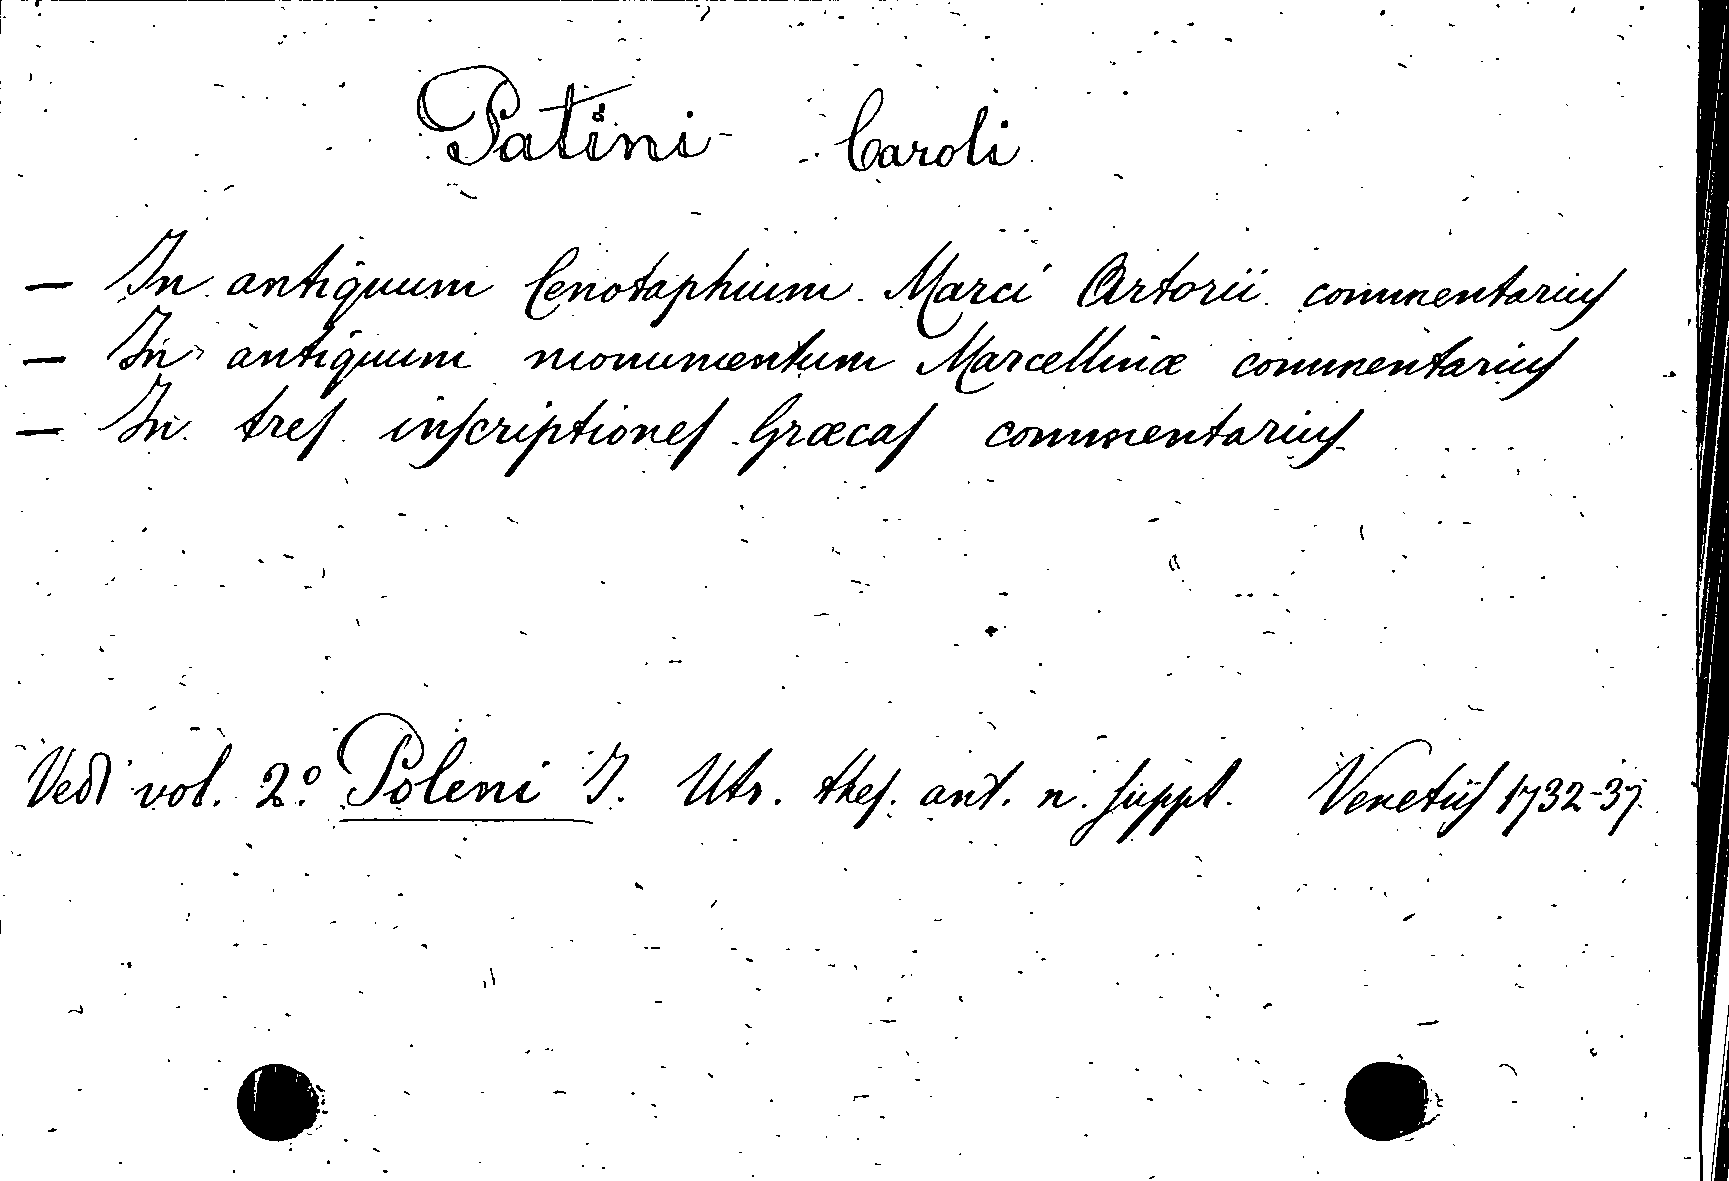 Patini Caroli
— In antiquum Cenotaphium Marci Artorii commentarius
— In antiquum monumentum Marcellinæ commentarius
— In tres inscriptiones Græcas commentarius
Vedi vol. 2.º Poleni I. Utr. thes. ant. n. suppl. Venetiis 1732-37